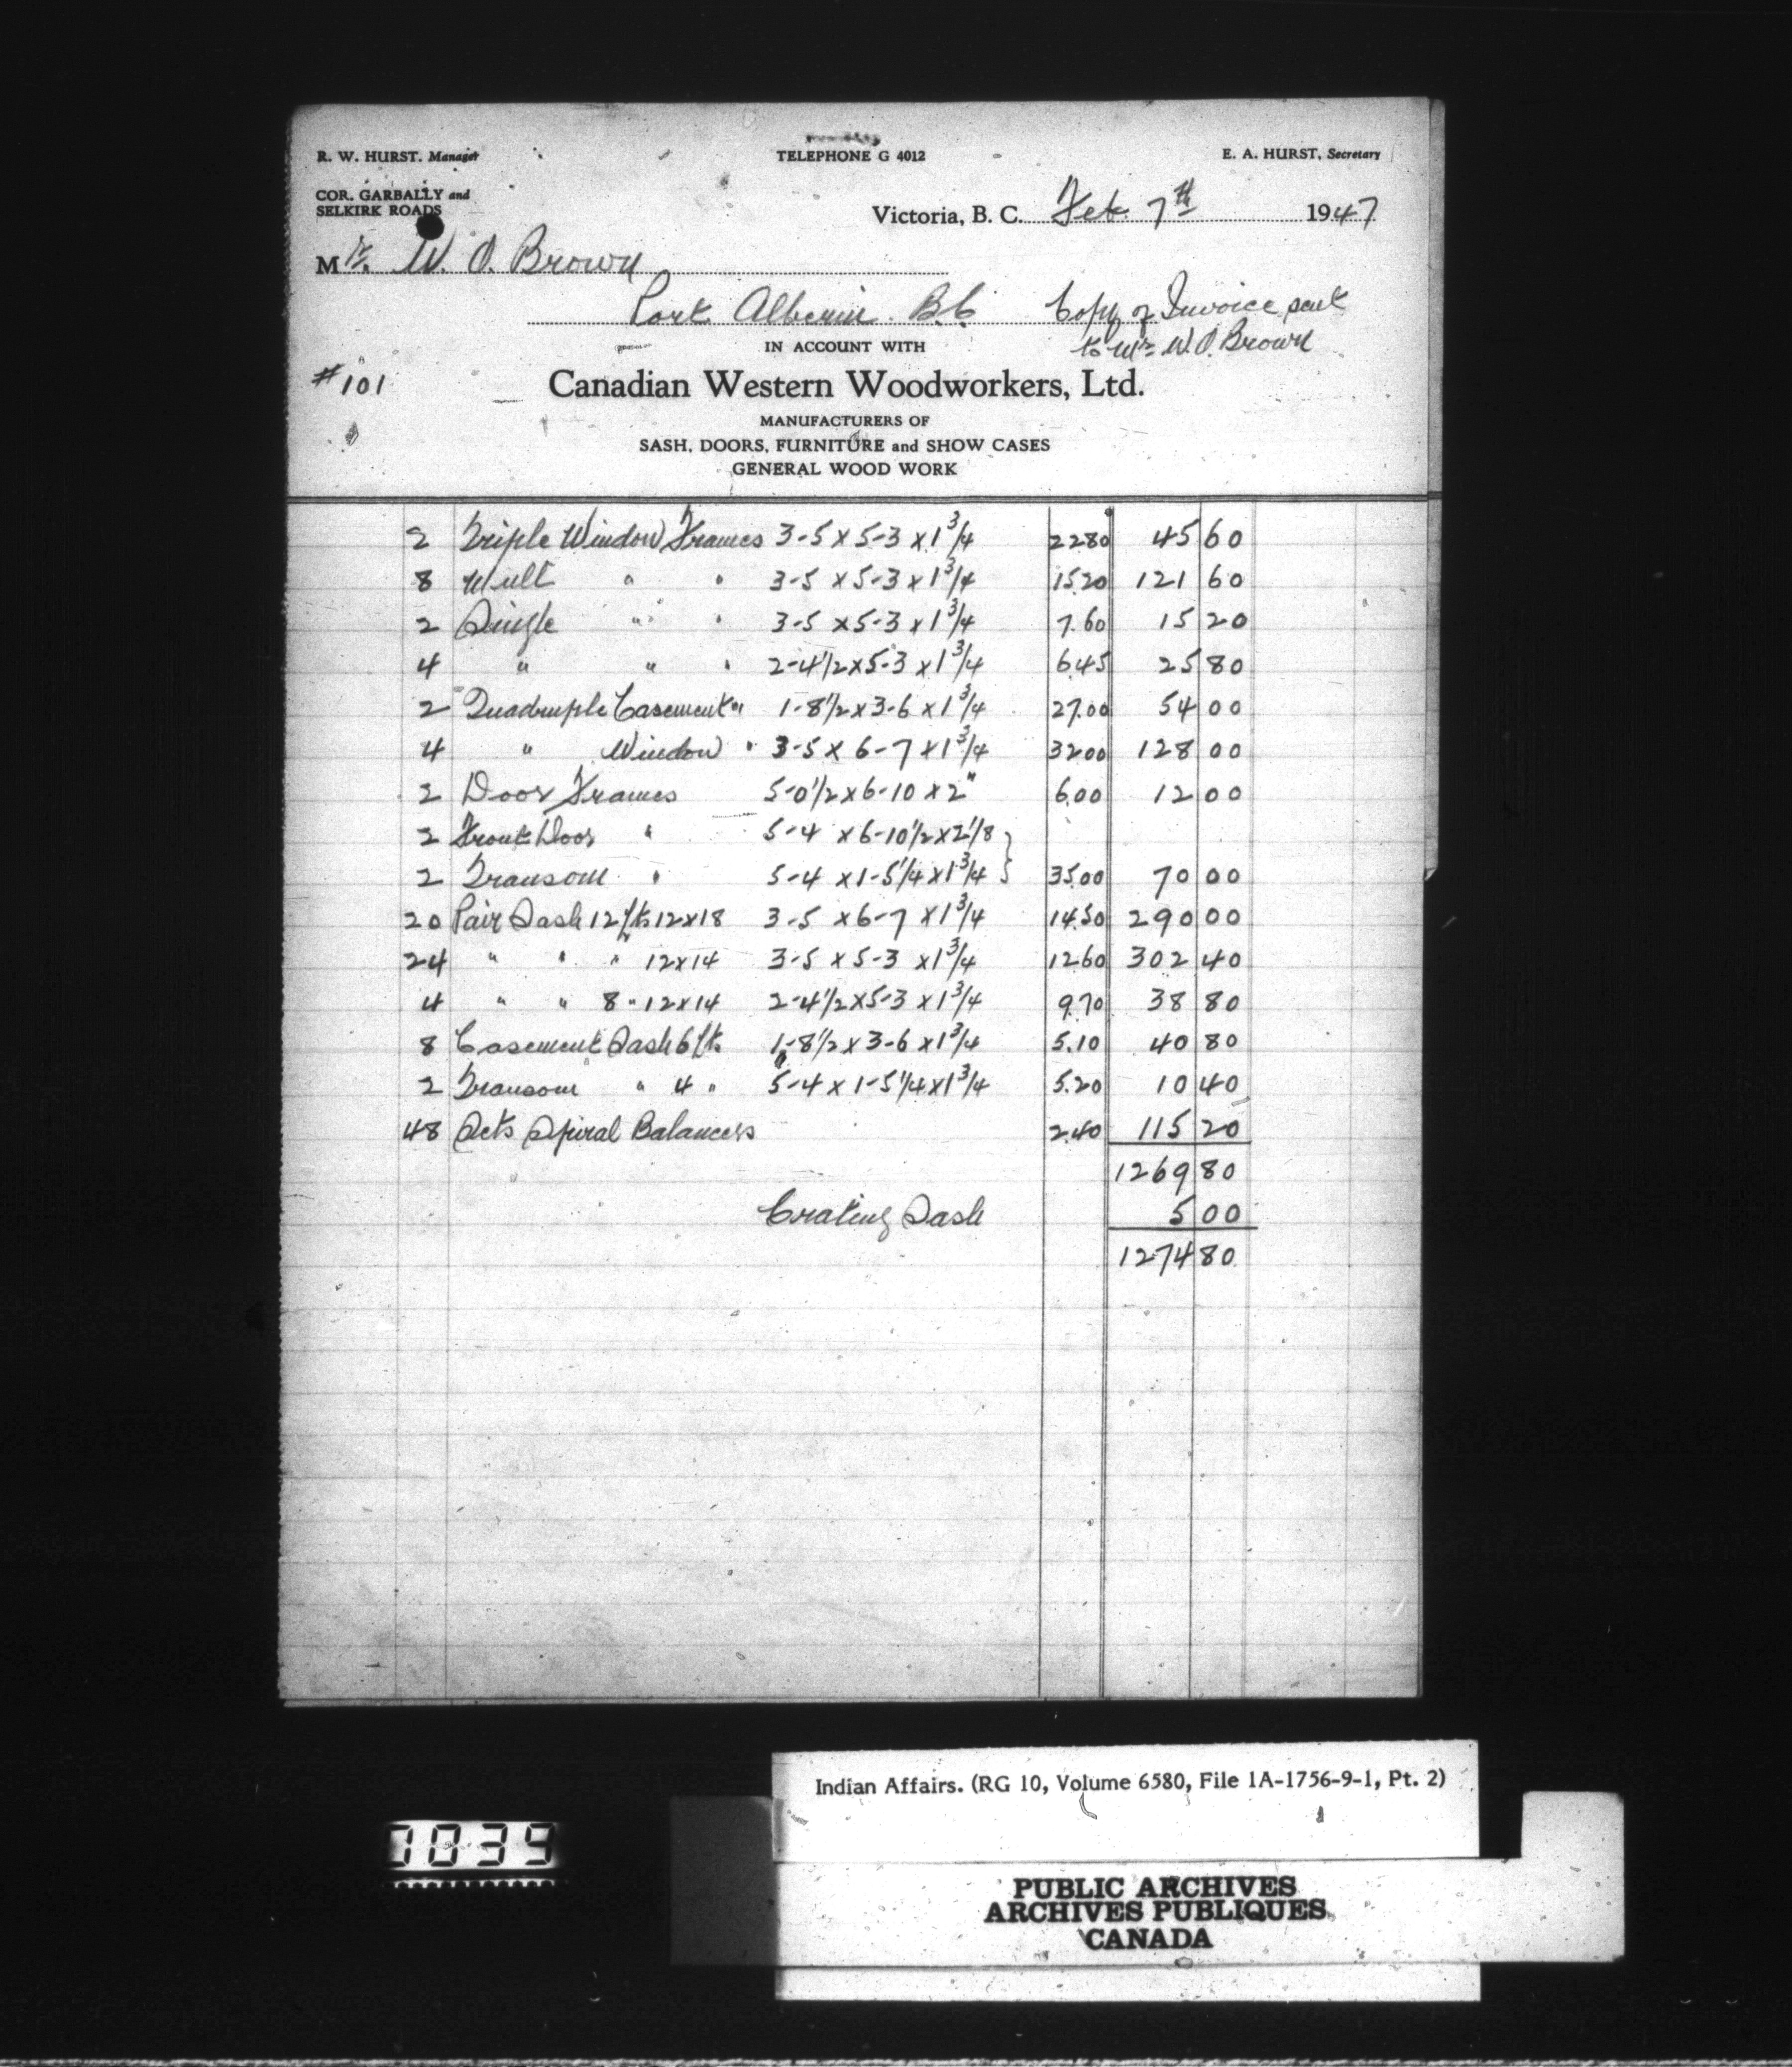 R. W. HURST. Manager TELEPHONE G 4012 E. A. HURST, Secretary
COR. GARBALLY and
SELKIRK ROADS
Victoria, B. C. Feb. 7th 1947
Mr. W. O. Brown
Port Alberni. B.C. Copy of Invoice sent
to Mr W. O. Brown
IN ACCOUNT WITH
#101 Canadian Western Woodworkers, Ltd.
MANUFACTURERS OF
SASH, DOORS, FURNITURE and SHOW CASES
GENERAL WOOD WORK
2 Triple Window Frames 3-5 x 5-3 x 1 3/4 22 80 45 60
8 Mult " " 3-5 x 5-3 x 1 3/4 15 20 121 60
2 Single " " 3-5 x 5-3 x 1 3/4 7.60 15 20
4 " " " 2-4 1/2 x 5-3 x 1 3/4 6.45 25 80
2 Quadruple Casement " 1-8 1/2 x 3-6 x 1 3/4 27.00 54 00
4 " Window " 3-5 x 6-7 x 1 3/4 32 00 128 00
2 Door Frames 5-0 1/2 x 6-10 x 2" 6.00 12 00
2 Front Door " 5-4 x 6-10 1/2 x 2 1/8 }
2 Transom " 5-4 x 1-5 1/4 x 1 3/4 } 35.00 70 00
20 Pair Sash 12 lts 12x18 3-5 x 6-7 x 1 3/4 14.50 290 00
24 " " " 12x14 3-5 x 5-3 x 1 3/4 12 60 302 40
4 " " 8 " 12x14 2-4 1/2 x 5-3 x 1 3/4 9.70 38 80
8 Casement Sash 6 lts 1-8 1/2 x 3-6 x 1 3/4 5.10 40 80
2 Transom " 4 " 5-4 x 1-5 1/4 x 1 3/4 5.20 10 40
48 Sets Spiral Balances 2.40 115 20
1269 80
Crating Sash 5 00
1274 80
Indian Affairs. (RG 10, Volume 6580, File 1A-1756-9-1, Pt. 2)
1039
PUBLIC ARCHIVES
ARCHIVES PUBLIQUES
CANADA